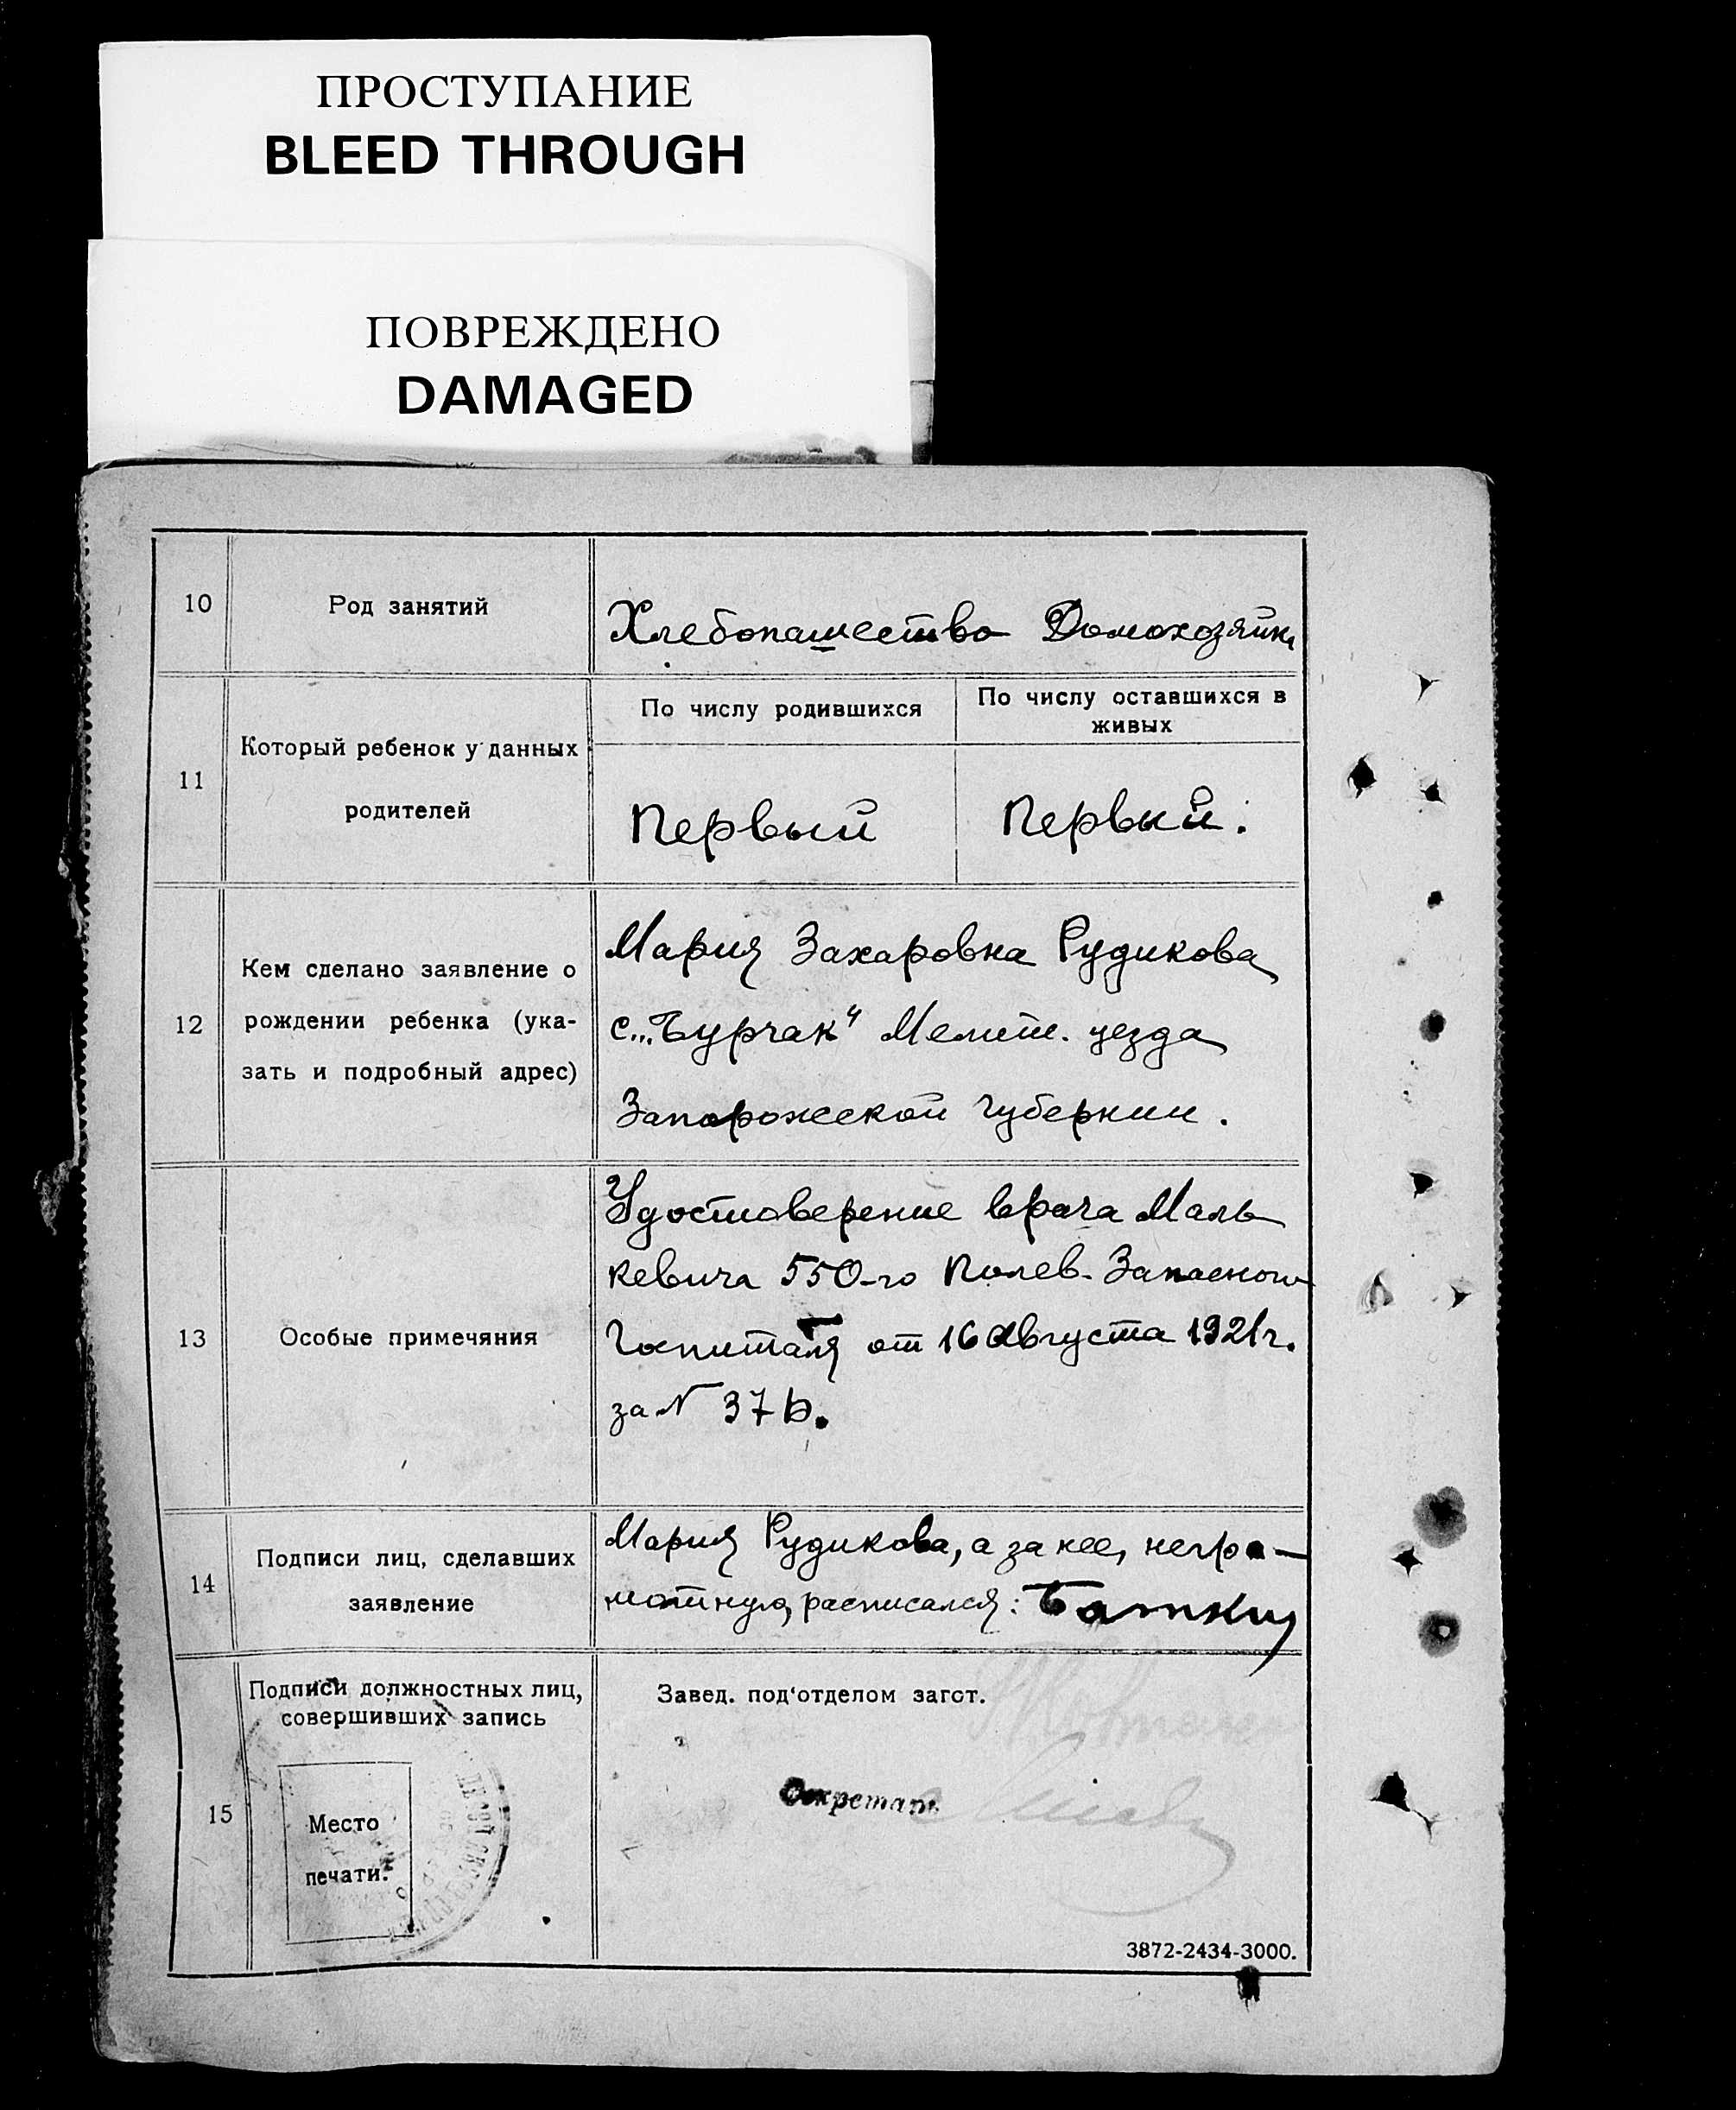 ПРОСТУПАНИЕ
BLEED THROUGH
ПОВРЕЖДЕНО
DAMAGED
10
Род занятий
Хлебопашество Домохозяйка
11
Который ребенок у данных
родителей
По числу родившихся
По числу оставшихся в
живых
Первый
Первый.
12
Кем сделано заявление о
рождении ребенка (ука-
зать и подробный адрес)
Мария Захаровна Рудикова
с. „Бурчак“ Мелит. уезда
Запорожской губернии.
13
Особые примечяния
Удостоверение врача Маль
кевича 550-го Полев. Запасного
Госпиталя от 16 Августа 1921 г.
за N
14
Подписи лиц, сделавших
заявление
Мария Рудикова, а за нее, негра-
мотную, расписался:
15
Подписи должностных лиц,
совершивших запись
Место
печати.
Завед. под‘отделом загст.
Секретарь
3872-2434-3000.